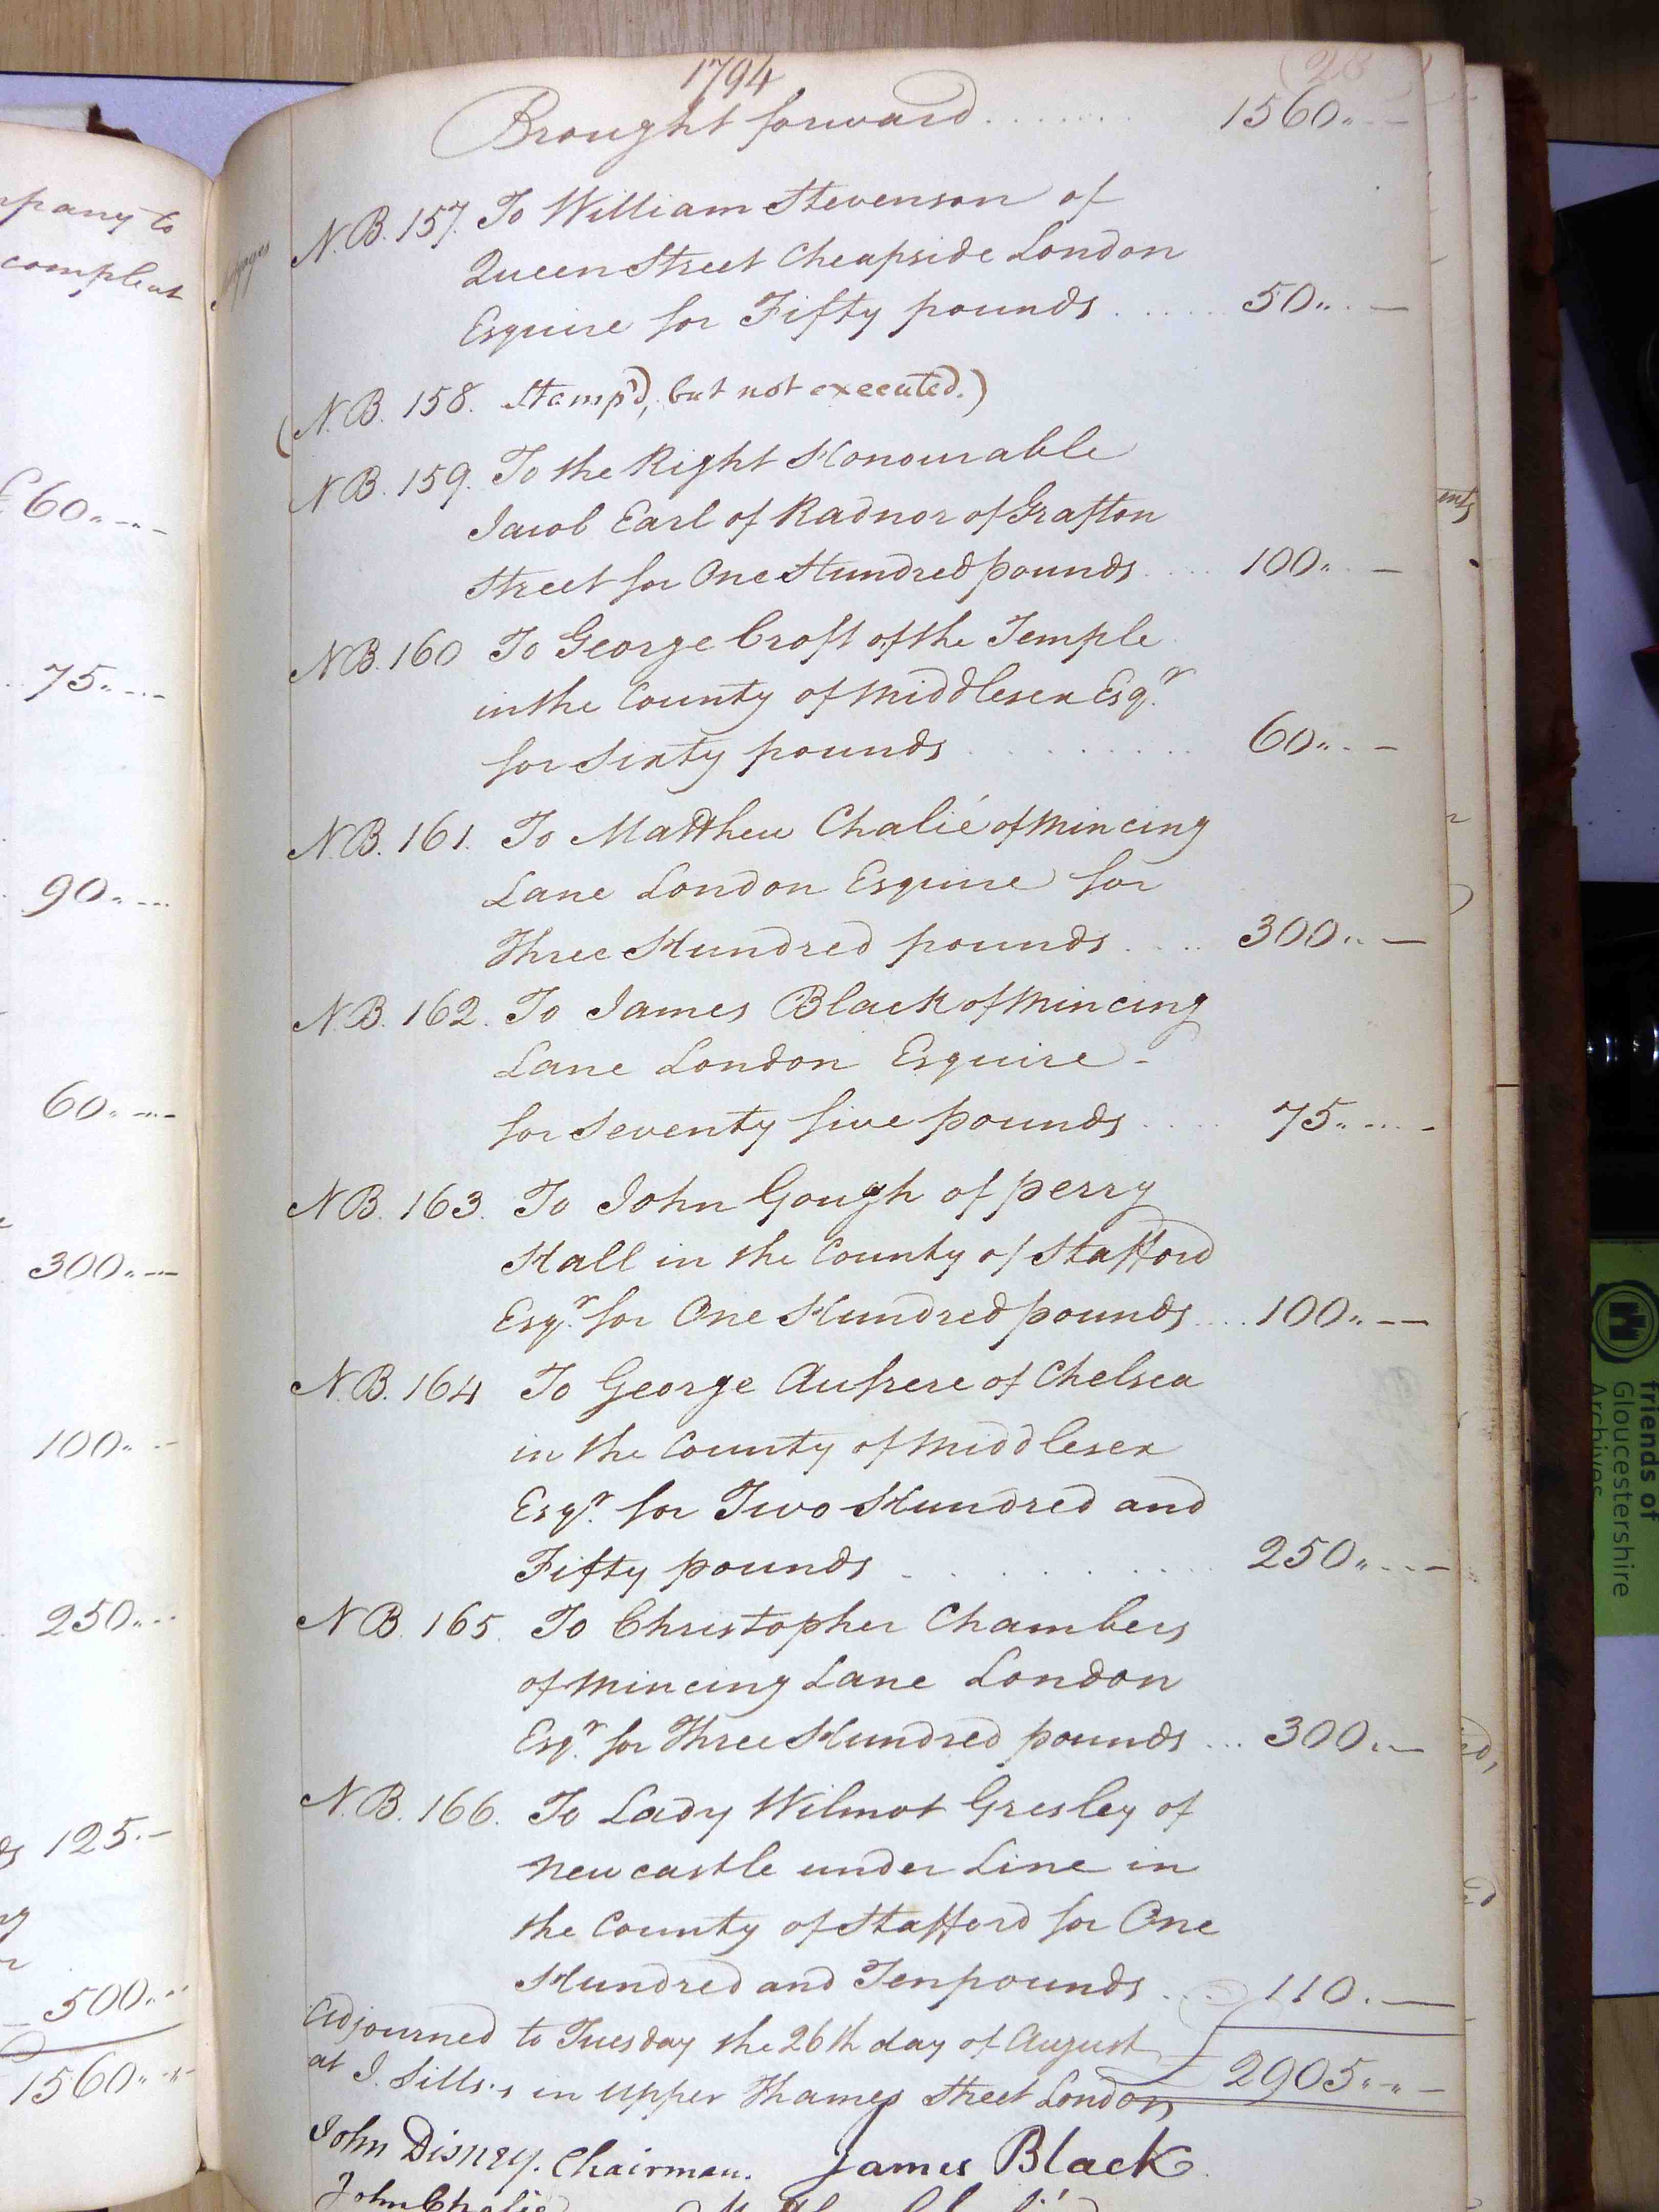 pany to
compleat
£60..---
75..---
90..---
60..---
300..---
100..--
250...
125.-
500...
1560..-
1794
(28)
Brought forward....... 1560..--
N.B. 157. To William Stevenson of
Queen Street Cheapside London
Esquire for Fifty pounds..... 50...-
(N.B. 158. Stamp'd, but not executed.)
N.B. 159. To the Right Honourable
Jacob Earl of Radnor of Grafton
Street for One Hundred pounds.... 100...-
N.B. 160 To George Croft of the Temple
in the County of Middlesex Esqr.
for Sixty pounds.......... 60...-
N.B. 161. To Matthew Chalié of Mincing
Lane London Esquire for
Three Hundred pounds.... 300...-
N.B. 162. To James Black of Mincing
Lane London Esquire -
for Seventy five pounds..... 75.....-
N.B. 163. To John Gough of Perry
Hall in the County of Stafford
Esqr. for One Hundred pounds.... 100..--
N.B. 164 To George Aufrere of Chelsea
in the County of Middlesex
Esqr. for Two Hundred and
Fifty pounds........... 250..---
N.B. 165. To Christopher Chambers
of Mincing Lane London
Esqr. for Three Hundred pounds... 300..-
N.B. 166. To Lady Wilmot Gresley of
Newcastle under Line in
the County of Stafford for One
Hundred and Ten pounds.... 110.-
Adjourned to Tuesday the 26th day of August
at J. Sills's in Upper Thames Street London
2905..--
John Disney. Chairman. James Black
John Chalié
friends of
Gloucestershire
Archives